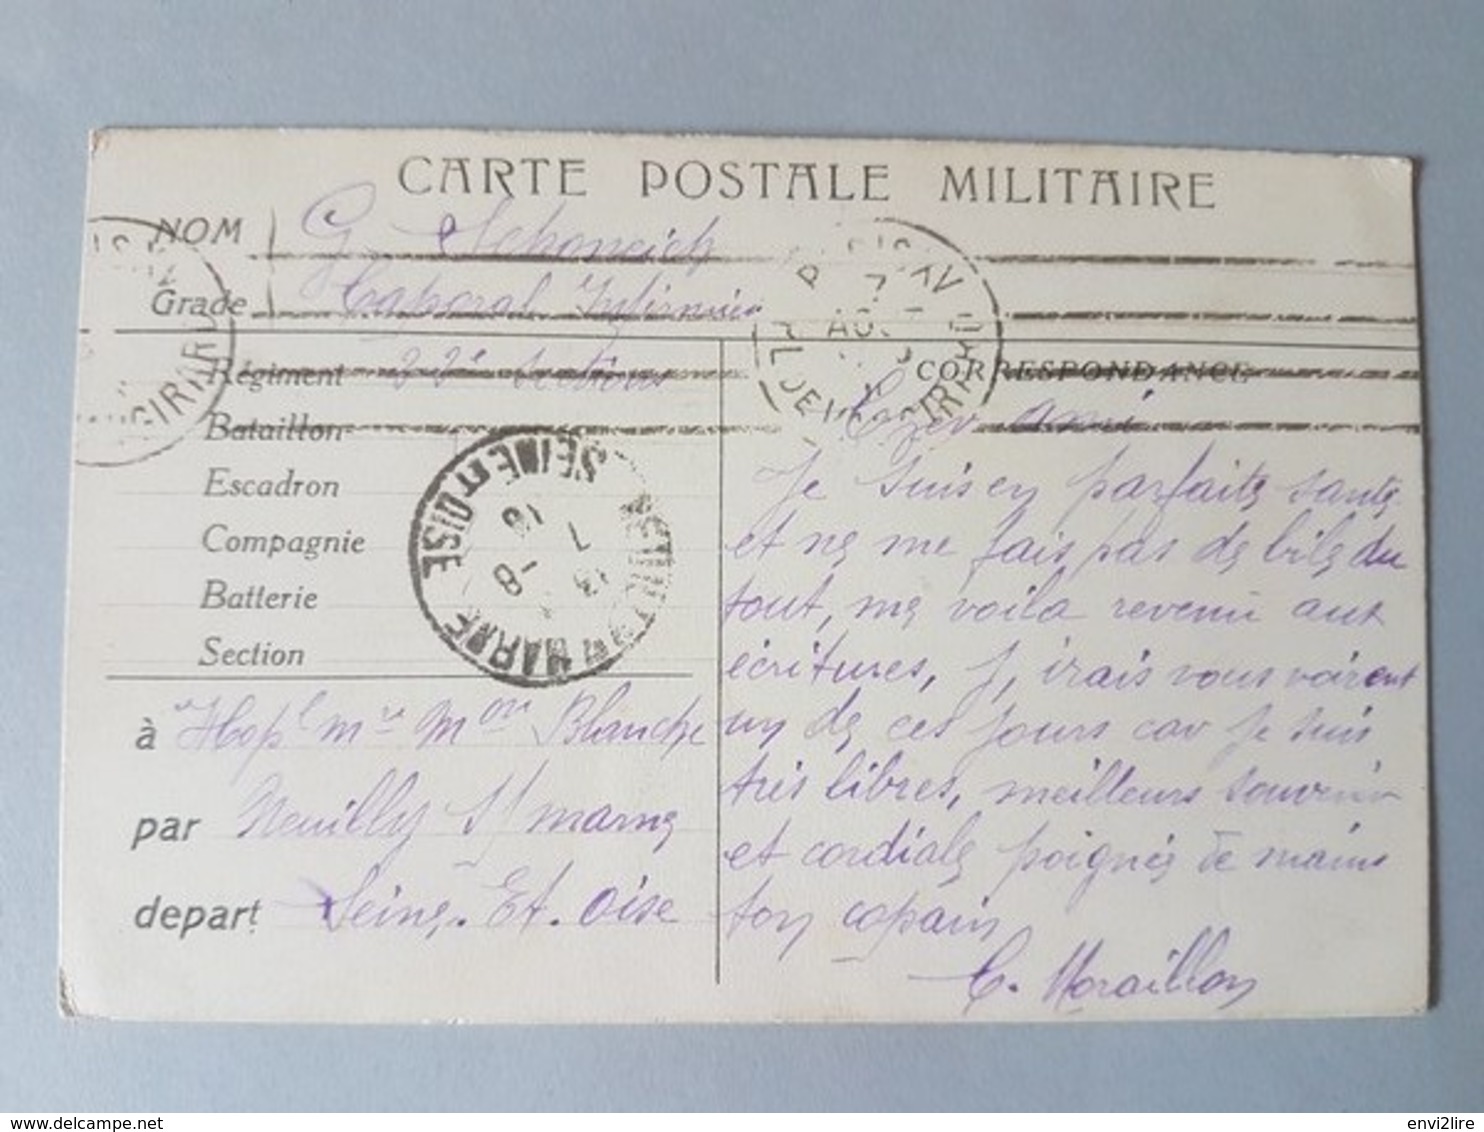 CARTE POSTALE MILITAIRE
NOM G. Schoneich
Grade Caporal Infirmier
Régiment 22e Sections
Bataillon
Escadron
Compagnie
Batterie
Section
à Hopl mre Mon Blanche
par Neuilly S/ marne
depart Seine. Et. Oise
SEINE ET OISE
MARNE
AOUT
CORRESPONDANCE
Cher ami
Je suis en parfaite santé
et ne me fais pas de bile du
tout, me voila revenu aux
écritures, J, irais vous voir
un de ces jours car je suis
très libres, meilleurs souvenir
et cordiale poignés de mains
ton copain
C. Moraillon
delcampe.net
envi2lire